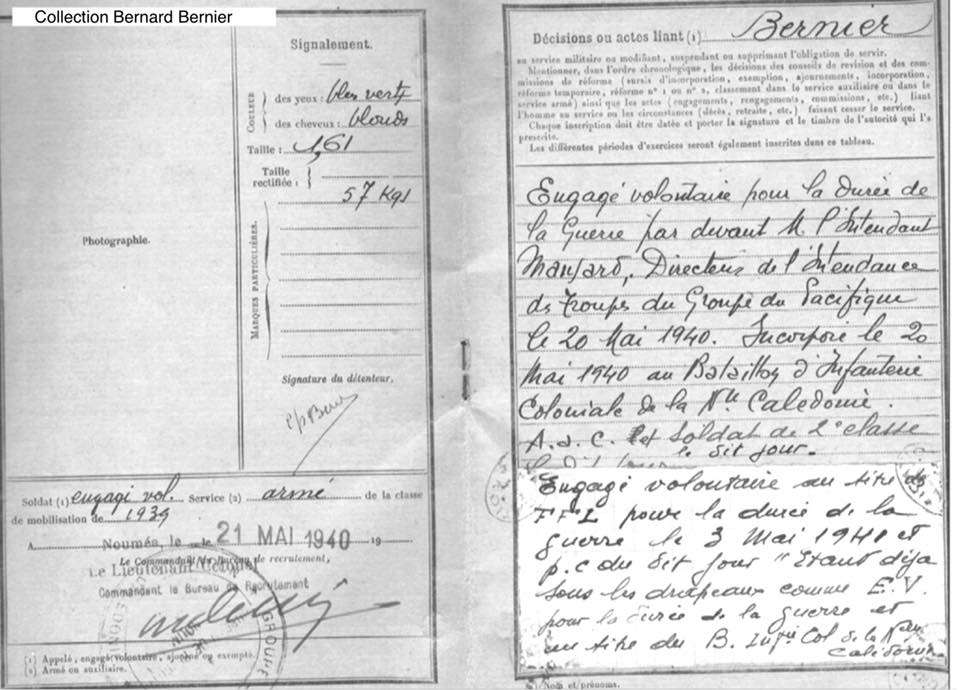 Collection Bernard Bernier
Signalement.
COULEUR
des yeux : bleu verts
des cheveux : blonds
Taille : 1,61
Taille
rectifiée :
57 Kgs
MARQUES PARTICULIÈRES.
Photographie.
Signature du détenteur.
Soldat (1) engagé vol. Service (2) armé de la classe
de mobilisation de 1939
A Nouméa, le 21 MAI 1940 19
Le Commandant du Bureau de recrutement,
Le Lieutenant Colonel
Commandant le Bureau de Recrutement
GROUPE
(1) Appelé, engagé volontaire, ajourné ou exempté.
(2) Armé ou auxiliaire.
Décisions ou actes liant (1) Bernier
au service militaire ou modifiant, suspendant ou supprimant l'obligation de servir.
Mentionner, dans l'ordre chronologique, les décisions des conseils de revision et des com-
missions de réforme (sursis d'incorporation, exemption, ajournements, incorporation,
réforme temporaire, réforme nº 1 ou nº 2, classement dans le service auxiliaire ou dans le
service armé) ainsi que les actes (engagements, rengagements, commissions, etc.) liant
l'homme au service ou les circonstances (décès, retraite, etc.) faisant cesser le service.
Chaque inscription doit être datée et porter la signature et le timbre de l'autorité qui l'a
prescrite.
Les différentes périodes d'exercices seront également inscrites dans ce tableau.
Engagé volontaire pour la durée de
la Guerre par devant M. l'Intendant
Directeur de l'Intendance
des Troupes du Groupe du Pacifique
le 20 Mai 1940. Incorporé le 20
Mai 1940 au Bataillon d'Infanterie
Coloniale de la Nlle Calédonie.
A. d. C. et soldat de 2e classe
le dit jour.
Engagé volontaire au titre des
FFL pour la durée de la
guerre le 3 Mai 1941 et
p.c du dit jour "Etant déjà
sous les drapeaux comme E.V.
pour la durée de la guerre et
au titre du B. Infie Col de la Nlle
Calédonie
Nom et prénoms.